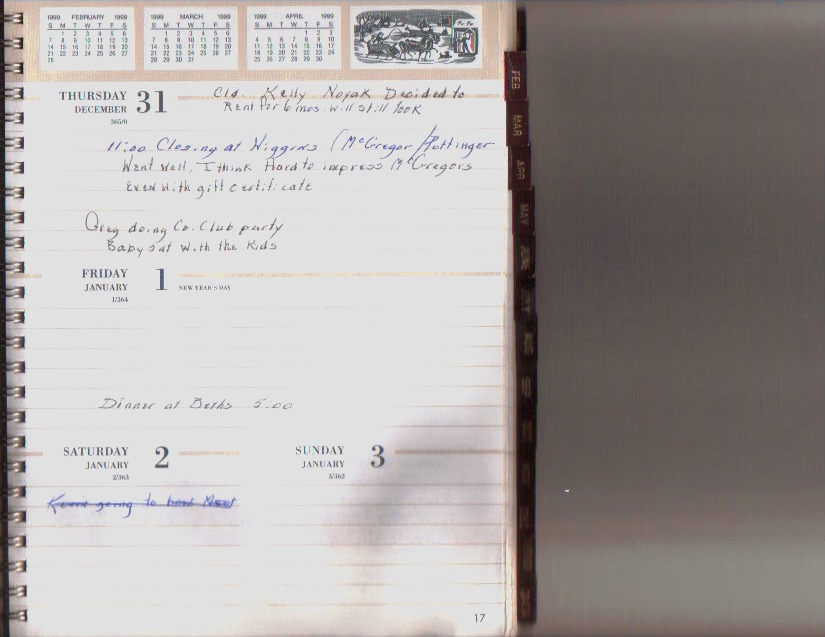 1999 FEBRUARY 1999
S M T W T F S
1 2 3 4 5 6
7 8 9 10 11 12 13
14 15 16 17 18 19 20
21 22 23 24 25 26 27
28
1999 MARCH 1999
S M T W T F S
1 2 3 4 5 6
7 8 9 10 11 12 13
14 15 16 17 18 19 20
21 22 23 24 25 26 27
28 29 30 31
1999 APRIL 1999
S M T W T F S
1 2 3
4 5 6 7 8 9 10
11 12 13 14 15 16 17
18 19 20 21 22 23 24
25 26 27 28 29 30
FEB
MAR
APR
MAY
THURSDAY 31
DECEMBER
365/0
Cld. Kelly Novak Decided to
Rent for 6 mos will still look
11:00 Closing at Wiggens (McGregor/Hottinger
Went well, I think Hard to impress McGregors
Even with gift certificate
Greg doing Co. Club party
Baby sat with the Kids
FRIDAY 1
JANUARY
1/364
NEW YEAR'S DAY
Dinner at Beths 5:00
SATURDAY 2
JANUARY
2/363
going to
SUNDAY 3
JANUARY
3/362
17